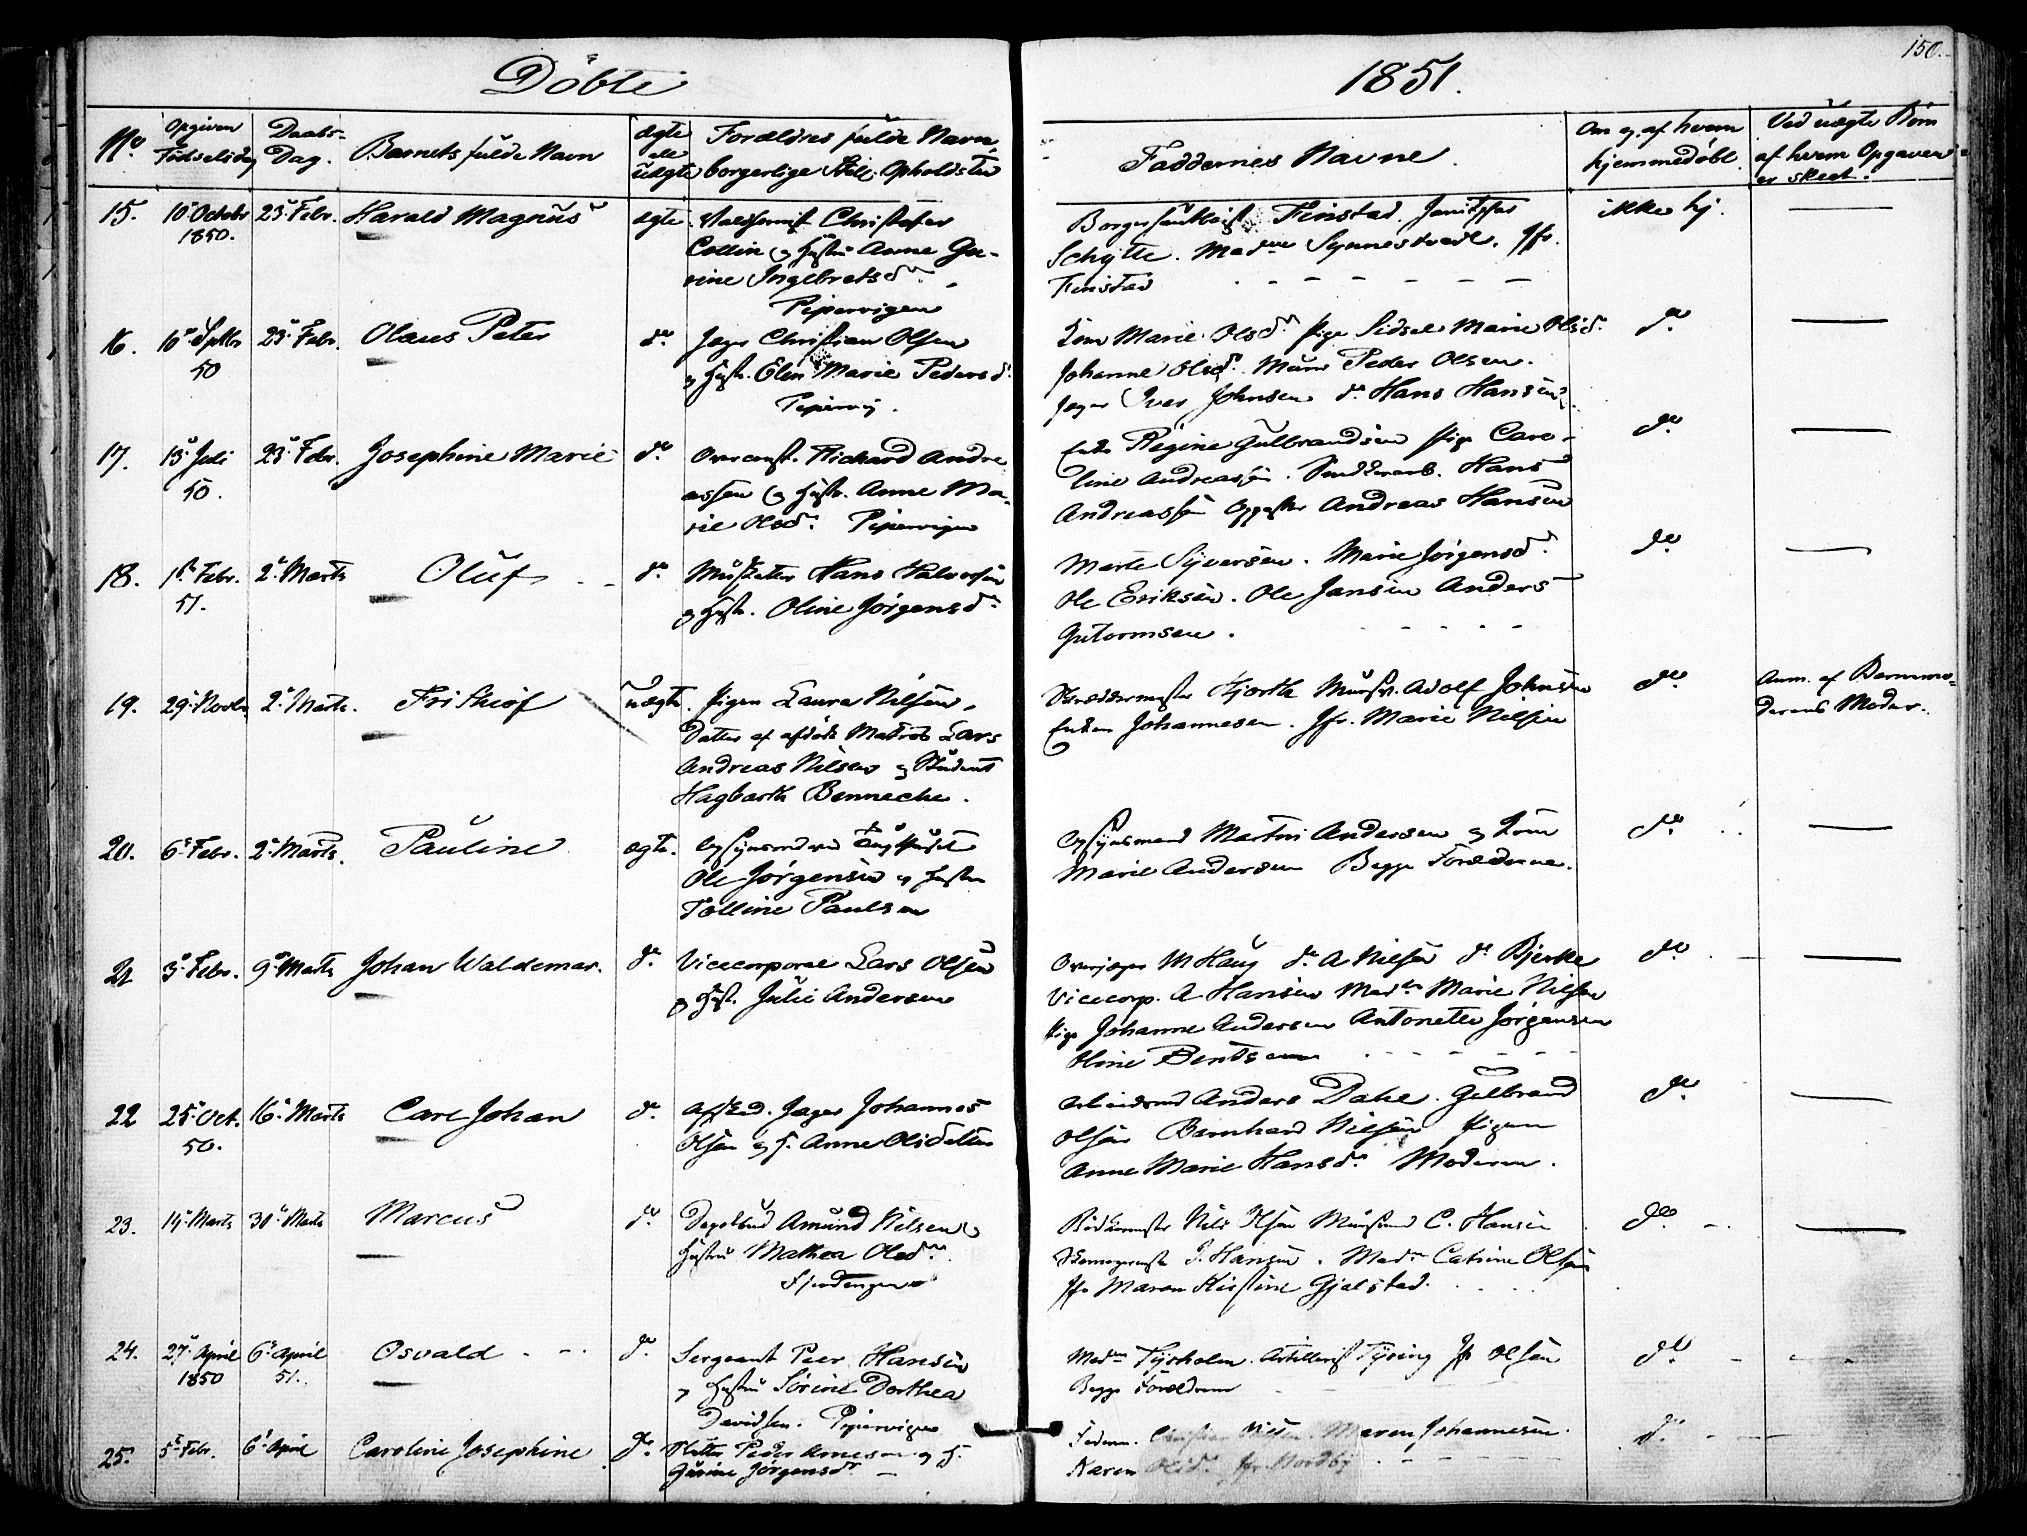 Döbte
1851.
150.
No
Opgiven Fødselsdag
Daabs-Dag.
Barnets fulde Navn
ægte ell uægte
Forældres fulde Navn, borgerlige Still. Opholdsted
Faddernes Navne.
Om og af hvem hjemmedøbt
Ved uægte Børn af hvem Opgaven er skeet.
15.
10 Octobr 1850.
23 Febr.
Harald Magnus
ægte
Christofer
Collin og Hustru Anne Gu-
rine Ingebretsd.
Pipervigen
Finstad.
Schytte. Madme Synnestvedt. Jfr.
Finstad
ikke hj.
16.
10 Septbr 50
23 Febr.
Olaus Peter
do
Jæger Christian Olsen
og Hustr. Elen Marie Pedersd.
Piperv.
Kone Marie Olsd. Pige Sidsel Marie Olsd.
Johanne Olsd. Murer Peder Olsen.
Jæger Iver Johnsen do Hans Hansen.
do.
17.
13 Juli 50.
23 Febr.
Josephine Marie
do
Richard Andre
assen og Hustr. Anne Ma-
rie Olsd. Pipervigen
Enke Regine Gulbrandsen Pige Caro-
line Andreassen. Hans
Andreassen Andreas Hansen
do.
18.
1 Febr. 51.
2 Marts
Oluf
do
Musketer Hans Halvorsen
og Hustr. Oline Jørgensd.
Marte Syversen. Marie Jørgensd.
Ole Eriksen. Ole Jansen Anders
Gutormsen.
do.
19.
29 Novbr.
2 Marts.
Frithiof
uægte.
Pigen Laura Nilsen,
Datter af afdøde Matros Lars
Andreas Nilsen og Student
Hagbarth Benneche.
Skræddermester Hjorth Adolf Johnsen
Enken Johannesen. Jfr. Marie Nilsen
do.
Anm. af Barnemo-
derens Moder.
20.
6 Febr.
2 Marts.
Pauline
ægte.
Opsynsmand ved Tugthuset
Ole Jørgensen og Hustru
Talline Paulsen
Opsynsmand Martin Andersen og Kone
Marie Andersen Begge Forældrene.
do
21
3 Febr.
9 Marts
Johan Waldemar.
do
Vicecorporal Lars Olsen
og Hust. Julie Andersen
Overjæger M Haug do A Nilsen do Bjerke
Vicecorp. A Hansen Madm Marie Nilsen
Pige Johanne Andersen Antonette Jørgensen
Oline Bentsen
do
22
25 Oct. 50.
16 Marts
Carl Johan
do
Afsked. Jæger Johannes
Olsen og H. Anne Olsdatter
Arbeidsmd Anders Dahl. Gulbrand
Olsen Bernhard Nilsen Pigen
Anne Marie Hansd. Moderen.
do.
23.
14 Marts
30 Marts
Marcus
do
Amund Nilsen
Hustru Mathea Olsd.
Nils Olsen C. Hansen
Skomagermester Hansen. Madm Catrine Olsen
Jfr Maren Kirstine Gjelstad.
do.
24.
27 April 1850
6 April 51.
Osvald
do
Sergeant Peer Hansen
og Hustru Sørine Dorthea
Davidsen. Pipervigen
Madm Tyrholm. Artillerist Tyring Jfr Olsen
Begge Forældrene
do
25.
5 Febr.
6 April
Caroline Josephine
do
Peder Arnesen og H.
Gurine Jørgensd.
Faderen. Christian Maren Johannesen.
Karen Olsd. Jfr Nordby
do.